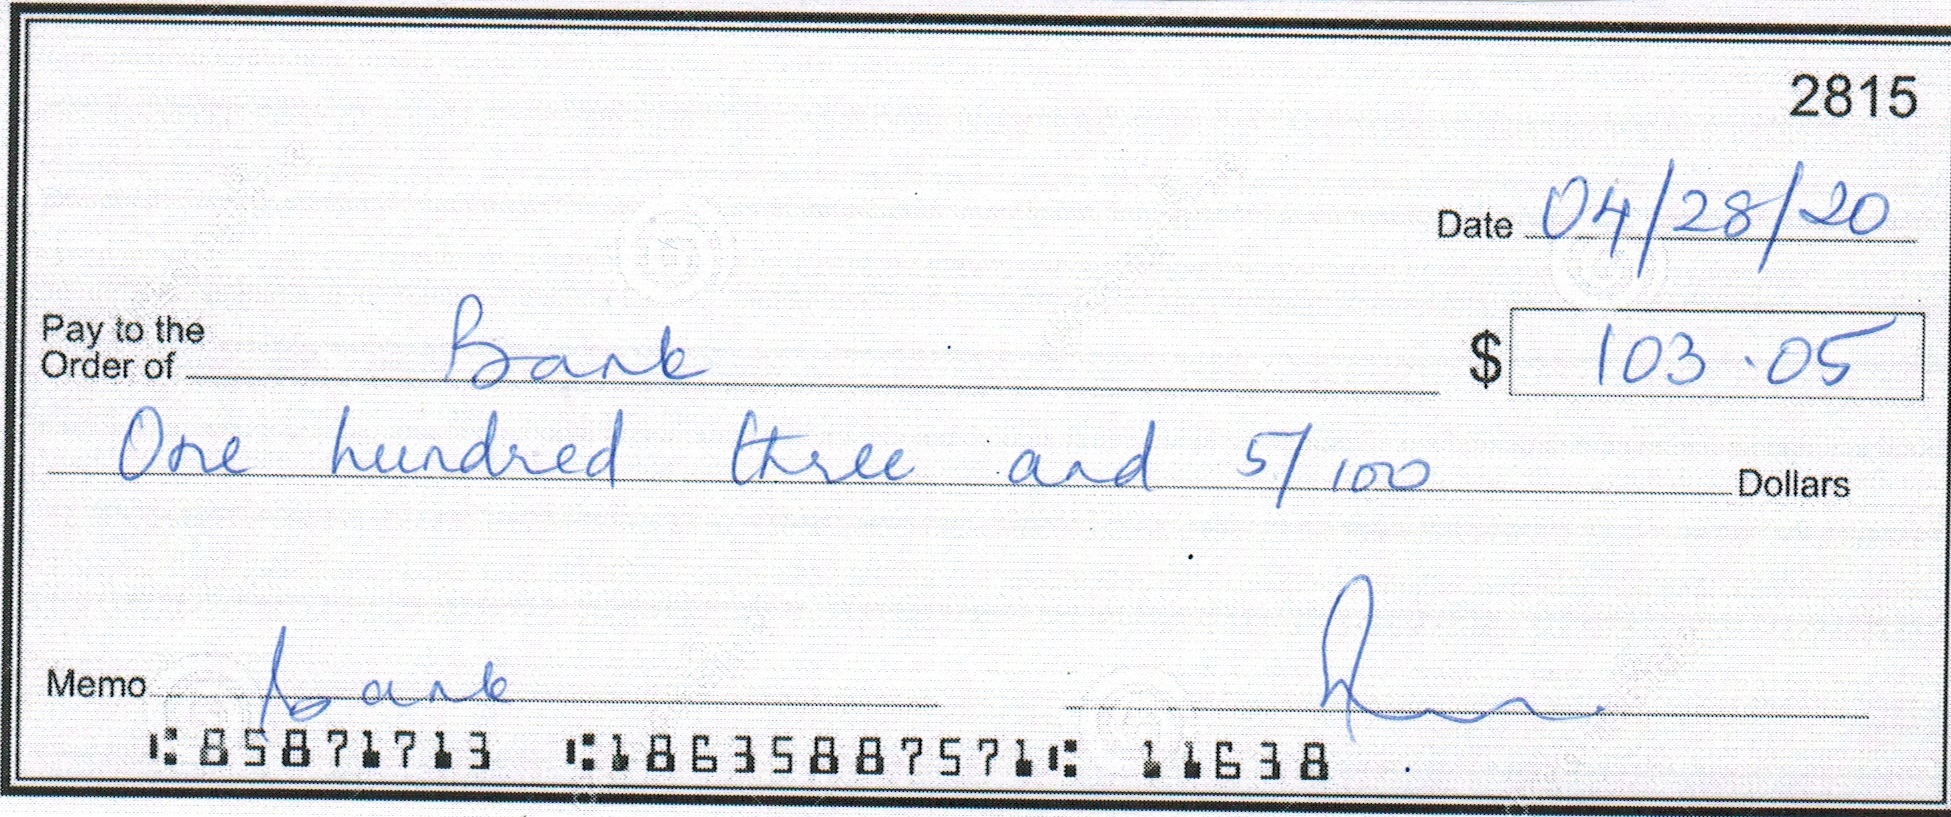 2815
Date 04/28/20
Pay to the
Order of Bank $ 103.05
One hundred three and 5/100 Dollars
Memo bank
⑆85871713 ⑆18635887571⑆ 11638